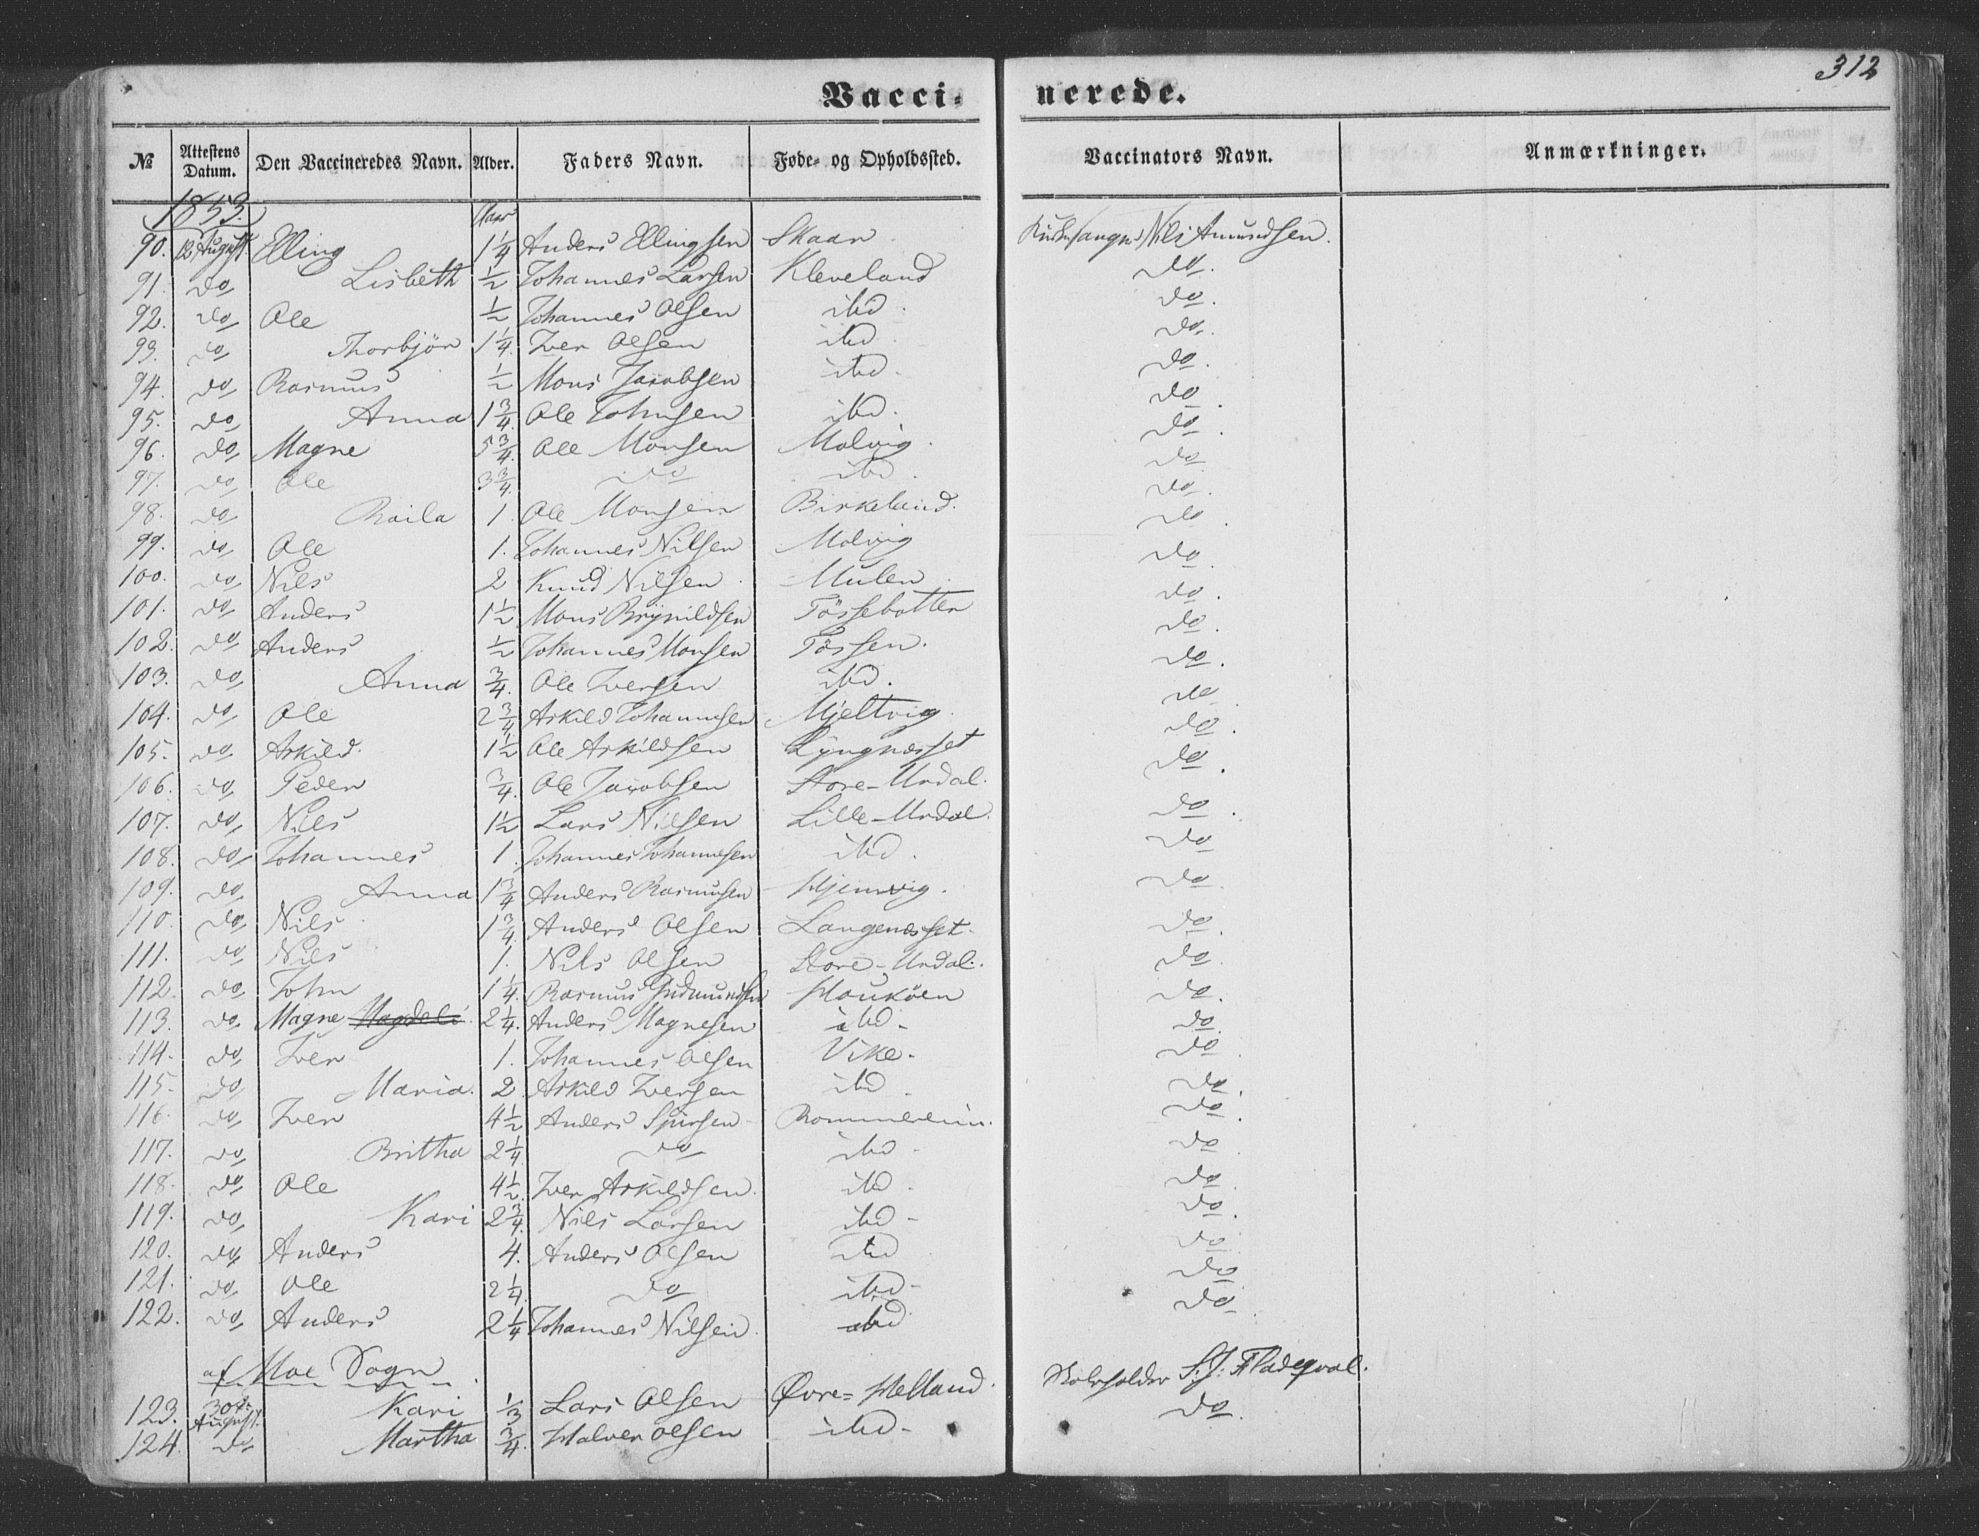 312
Vacci- nerede.
№ Attestens Datum. Den Vaccineredes Navn. Alder. Faders Navn. Føde- og Opholdssted. Vaccinators Navn. Anmærkninger.
1853. Aar
90. 12 August Elling 1 1/4 Anders Ellingsen Skaar Kirkesanger Nils Amundsen.
91. do Lisbeth 1/2 Johannes Larsen Kleveland do.
92. do Ole 1/2 Johannes Olsen ibd. do.
93. do Thorbjør 1 1/4. Iver Olsen ibd. do.
94. do Rasmus 1/2 Mons Jacobsen ibd. do.
95. do Anna 1 3/4. Ole Johnsen ibd. do.
96. do Magne 5 3/4. Ole Monsen Molvig. do.
97. do Ole 3 3/4. do ibd. do.
98. do Raila 1. Ole Monsen Birkeland. do.
99. do Ole 1. Johannes Nilsen Molvig do.
100. do Nils 2 Knud Nilsen Mulen do.
101. do Anders 1 1/2 Mons Brynildsen Tössebotten do.
102. do Anders 1/2 Johannes Monsen Tössen. do.
103. do Anna 3/4. Ole Iversen ibd. do.
104. do Ole 2 3/4 Askild Johannesen Mjeltvig. do.
105. do Askild. 1 1/2 Ole Askildsen Lyngnæsset do.
106. do Peder 3/4. Ole Jacobsen Store-Urdal. do.
107. do Nils 1 1/2 Lars Nilsen Lille-Urdal. do.
108. do Johannes 1. Johannes Johannesen ibd. do
109. do Anna 1 3/4 Anders Rasmusen Hjemvig. do.
110. do Nils 1 3/4. Anders Olsen Langenæsset. do.
111. do Nils 1. Nils Olsen Store-Urdal. do.
112. do John 1 1/4. Rasmus Gudmundsen Haukøen do.
113. do Magne Magdeli 2 1/4. Anders Magnesen ibd. do.
114. do Iver 1. Johannes Olsen Vike. do.
115. do Maria. 2 Askild Iversen ibd. do.
116. do Iver 4 1/2 Anders Sjursen Rommereim. do.
117. do Britha 2 1/4 do ibd. do.
118. do Ole 4 1/2. Iver Askildsen. ibd. do.
119. do Kari 2 3/4. Nils Larsen ibd. do.
120. do Anders 4. Anders Olsen ibd do.
121. do Ole 2 1/4. do ibd. do
122. do Anders 2 1/4 Johannes Nilsen. ibd do.
af Moe Sogn.
123. 30te August. Kari 1/3 Lars Olsen Øvre-Helland. Skoleholder S. J. Fladeqval.
124. do Martha 3/4. Halver Olsen ibd. do.